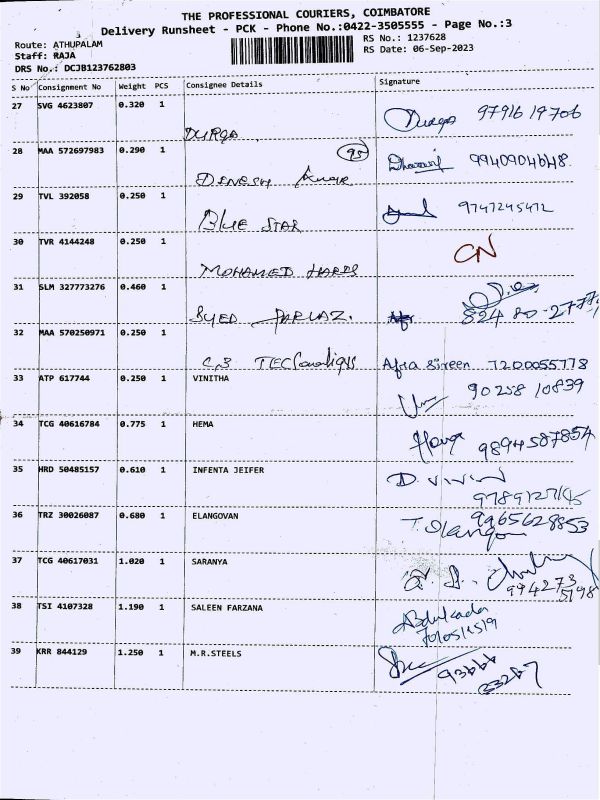 THE PROFESSIONAL COURIERS, COIMBATORE
Delivery Runsheet - PCK - Phone No.:0422-3505555 - Page No.:3
Route: ATHUPALAM
RS No.: 1237628
Staff: RAJA
RS Date: 06-Sep-2023
DRS No.: DCJB123762803
S No Consignment No Weight PCS Consignee Details Signature
27 SVG 4623807 0.320 1 DURGA Durga 97916 19706
28 MAA 572697983 0.290 1 95 DINESH Kumar 9940904648
29 TVL 392058 0.250 1 BLUE STAR 9747245472
30 TVR 4144248 0.250 1 MOHAMED HARIS CN
31 SLM 327773276 0.460 1 SYED
32 MAA 570250971 0.250 1 Afra Sireen 7200055778
33 ATP 617744 0.250 1 VINITHA 90258 10839
34 TCG 40616784 0.775 1 HEMA 9894587854
35 HRD 50485157 0.610 1 INFENTA JEIFER
36 TRZ 30026087 0.680 1 ELANGOVAN 9965628853
37 TCG 40617031 1.020 1 SARANYA
38 TSI 4107328 1.190 1 SALEEN FARZANA
39 KRR 844129 1.250 1 M.R.STEELS